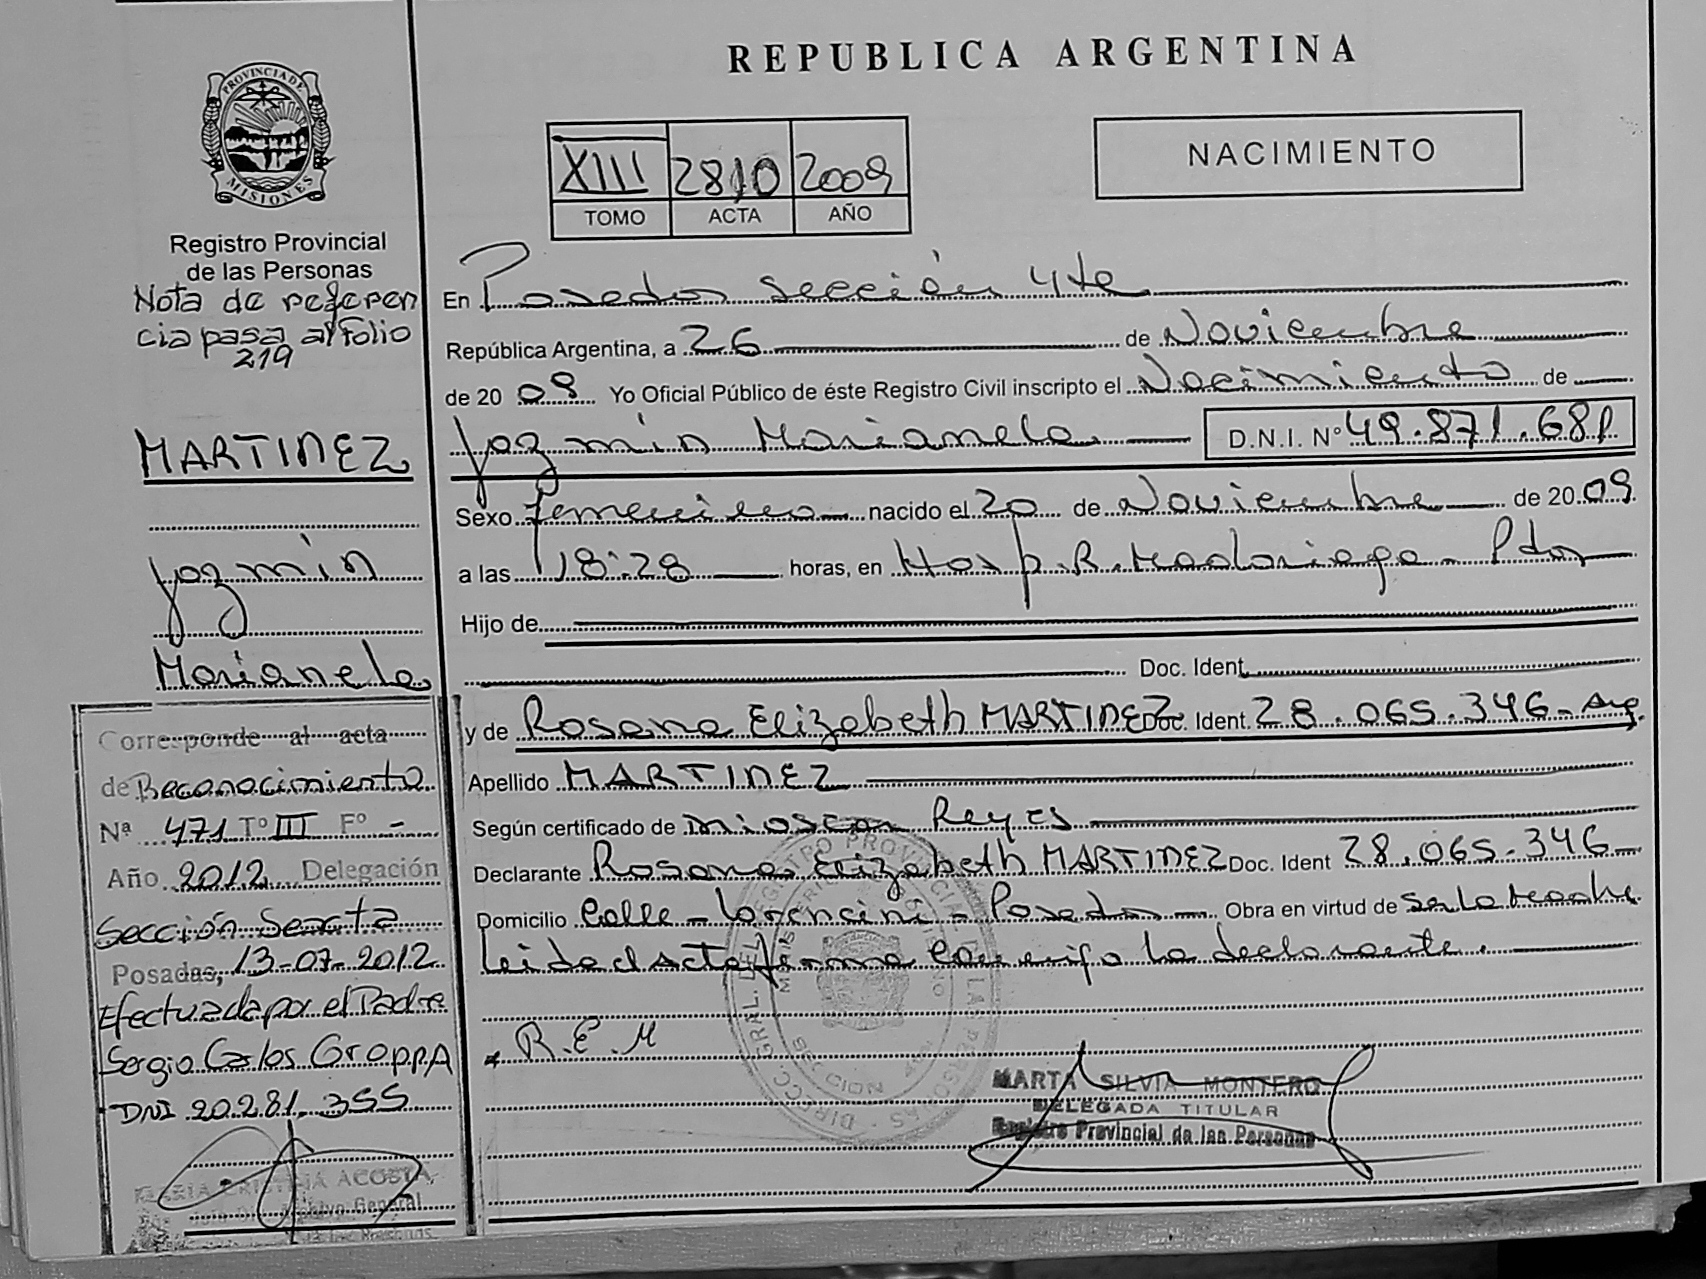 REPUBLICA ARGENTINA
PROVINCIA DE
MISIONES
Registro Provincial
de las Personas
Nota de referen
cia pasa al Folio
219
XIII 2810 2009
TOMO ACTA AÑO
NACIMIENTO
En Posadas sección 4ta
República Argentina, a 26 de Noviembre
de 20 09 Yo Oficial Público de éste Registro Civil inscripto el Nacimiento de
MARTINEZ
Jazmín Marianela D.N.I. Nº 49.871.681
Sexo femenino nacido el 20 de Noviembre de 20 09
Jazmín
a las 18:28 horas, en Hosp. R. Madariaga - Pdas
Hijo de
Marianela
Doc. Ident.
y de Rosana Elizabeth MARTINEZ Doc. Ident. 28.065.346 - Arg.
Apellido MARTINEZ
Según certificado de Reyes
Declarante Rosana Elizabeth MARTINEZ Doc. Ident 28.065.346
Domicilio Calle - Lorencini - Posadas Obra en virtud de ser la madre
Leida el Acta firma conmigo la declarante.
R.E.M
MARTA SILVIA MONTERO
DELEGADA TITULAR
Registro Provincial de las Personas
Corresponde al acta
de Reconocimiento
Nª 471 Tº III Fº -
Año 2012 Delegación
Sección Sexta
Posadas, 13-07-2012
Efectuada por el Padre
Sergio Carlos GroppA
DNI 20.281.355
MARIA CRISTINA ACOSTA
Archivo General